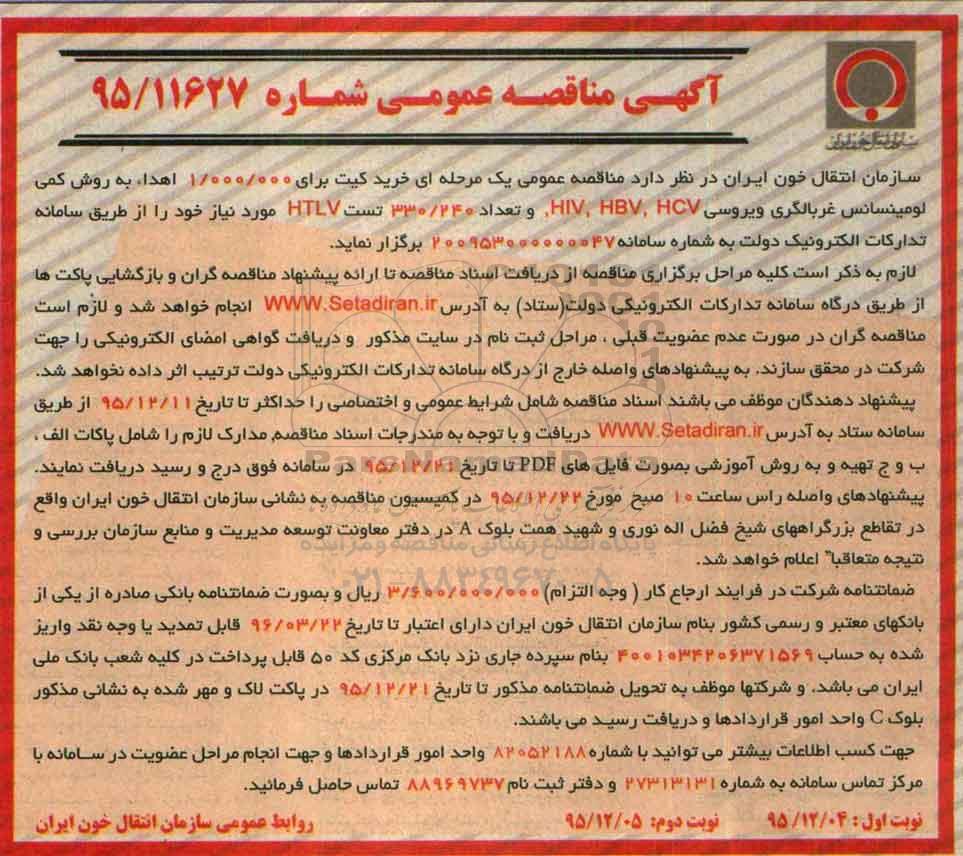 آگهی مناقصه عمومی شماره ۹۵/۱۱۶۲۷
سازمان انتقال خون ایران در نظر دارد مناقصه عمومی یک مرحله ای خرید کیت برای ۱/۰۰۰/۰۰۰ اهدا، به روش کمی
لومینسانس غربالگری ویروسی HIV, HBV, HCV, و تعداد ۳۳۰/۲۴۰ تست HTLV مورد نیاز خود را از طریق سامانه
تدارکات الکترونیک دولت به شماره سامانه ۲۰۰۹۵۳۰۰۰۰۰۰۰۴۷ برگزار نماید.
لازم به ذکر است کلیه مراحل برگزاری مناقصه از دریافت اسناد مناقصه تا ارائه پیشنهاد مناقصه گران و بازگشایی پاکت ها
از طریق درگاه سامانه تدارکات الکترونیکی دولت(ستاد) به آدرس WWW.Setadiran.ir انجام خواهد شد و لازم است
مناقصه گران در صورت عدم عضویت قبلی ، مراحل ثبت نام در سایت مذکور و دریافت گواهی امضای الکترونیکی را جهت
شرکت در محقق سازند. به پیشنهادهای واصله خارج از درگاه سامانه تدارکات الکترونیکی دولت ترتیب اثر داده نخواهد شد.
پیشنهاد دهندگان موظف می باشند اسناد مناقصه شامل شرایط عمومی و اختصاصی را حداکثر تا تاریخ ۹۵/۱۲/۱۱ از طریق
سامانه ستاد به آدرس WWW.Setadiran.ir دریافت و با توجه به مندرجات اسناد مناقصه، مدارک لازم را شامل پاکات الف ،
ب و ج تهیه و به روش آموزشی بصورت فایل های PDF تا تاریخ ۹۵/۱۲/۲۱ در سامانه فوق درج و رسید دریافت نمایند.
پیشنهادهای واصله راس ساعت ۱۰ صبح مورخ ۹۵/۱۲/۲۲ در کمیسیون مناقصه به نشانی سازمان انتقال خون ایران واقع
در تقاطع بزرگراههای شیخ فضل اله نوری و شهید همت بلوک A در دفتر معاونت توسعه مدیریت و منابع سازمان بررسی و
نتیجه متعاقبا" اعلام خواهد شد.
ضمانتنامه شرکت در فرایند ارجاع کار ( وجه التزام) ۳/۶۰۰/۰۰۰/۰۰۰ ریال و بصورت ضمانتنامه بانکی صادره از یکی از
بانکهای معتبر و رسمی کشور بنام سازمان انتقال خون ایران دارای اعتبار تا تاریخ ۹۶/۰۳/۲۲ قابل تمدید یا وجه نقد واریز
شده به حساب ۴۰۰۱۰۳۴۲۰۶۳۷۱۵۶۹ بنام سپرده جاری نزد بانک مرکزی کد ۵۰ قابل پرداخت در کلیه شعب بانک ملی
ایران می باشد. و شرکتها موظف به تحویل ضمانتنامه مذکور تا تاریخ ۹۵/۱۲/۲۱ در پاکت لاک و مهر شده به نشانی مذکور
بلوک C واحد امور قراردادها و دریافت رسید می باشند.
جهت کسب اطلاعات بیشتر می توانید با شماره ۸۲۰۵۲۱۸۸ واحد امور قراردادها و جهت انجام مراحل عضویت در سامانه با
مرکز تماس سامانه به شماره ۲۷۳۱۳۱۳۱ و دفتر ثبت نام ۸۸۹۶۹۷۳۷ تماس حاصل فرمائید.
نوبت اول : ۹۵/۱۲/۰۴ نوبت دوم: ۹۵/۱۲/۰۵ روابط عمومی سازمان انتقال خون ایران
ParsNamadData
پایگاه اطلاع رسانی مناقصه و مزایده
۰۲۱-۸۸۳۴۹۶۷۰-۸